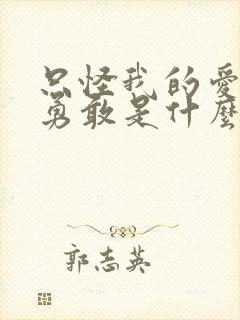 只怪我的愛
勇敢是什麼
郭志英